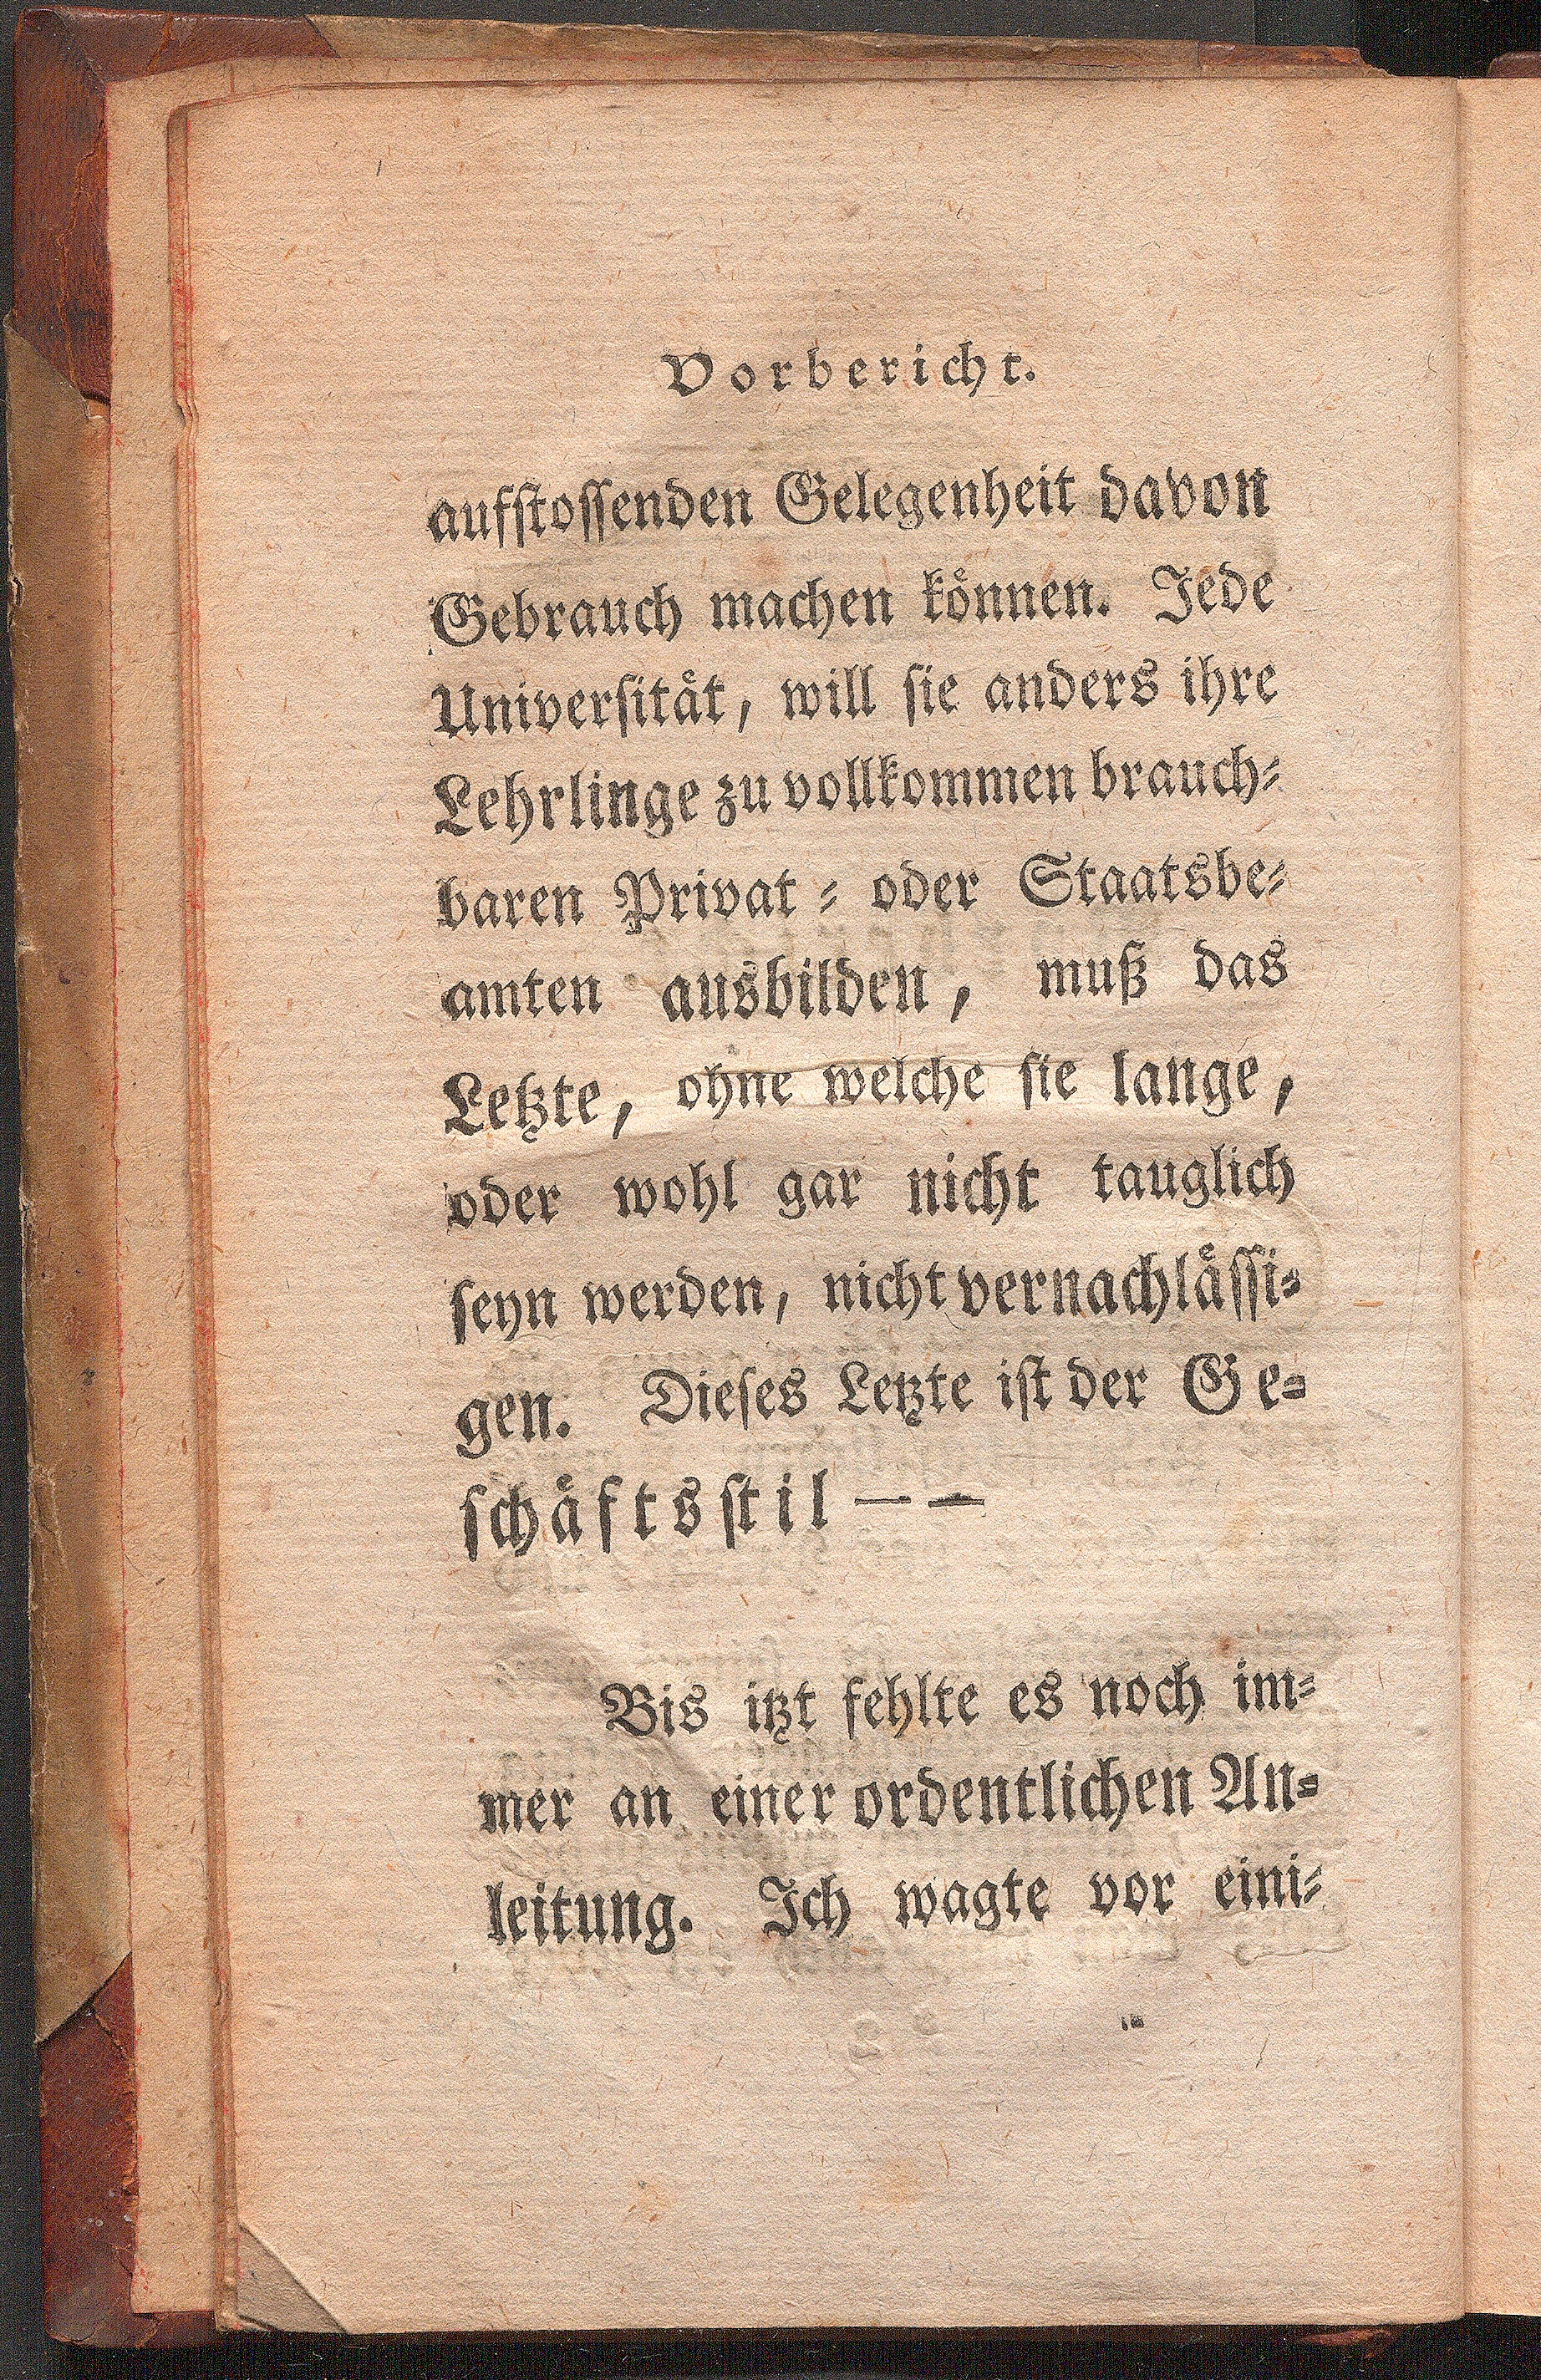 Vorbericht.
aufstossenden Gelegenheit davon
Gebrauch machen können. Jede
Universität, will sie anders ihre
Lehrlinge zu vollkommen brauch-
baren Privat- oder Staatsbe-
amten ausbilden, muß das
Letzte, ohne welche sie lange,
oder wohl gar nicht tauglich
seyn werden, nicht vernachlässi-
gen. Dieses Letzte ist der Ge-
schäftsstil — —
Bis itzt fehlte es noch im-
mer an einer ordentlichen An-
leitung. Ich wagte vor eini-